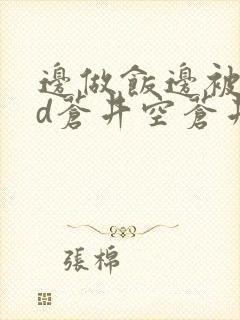 邊做飯邊被
d蒼井空蒼井
張棉